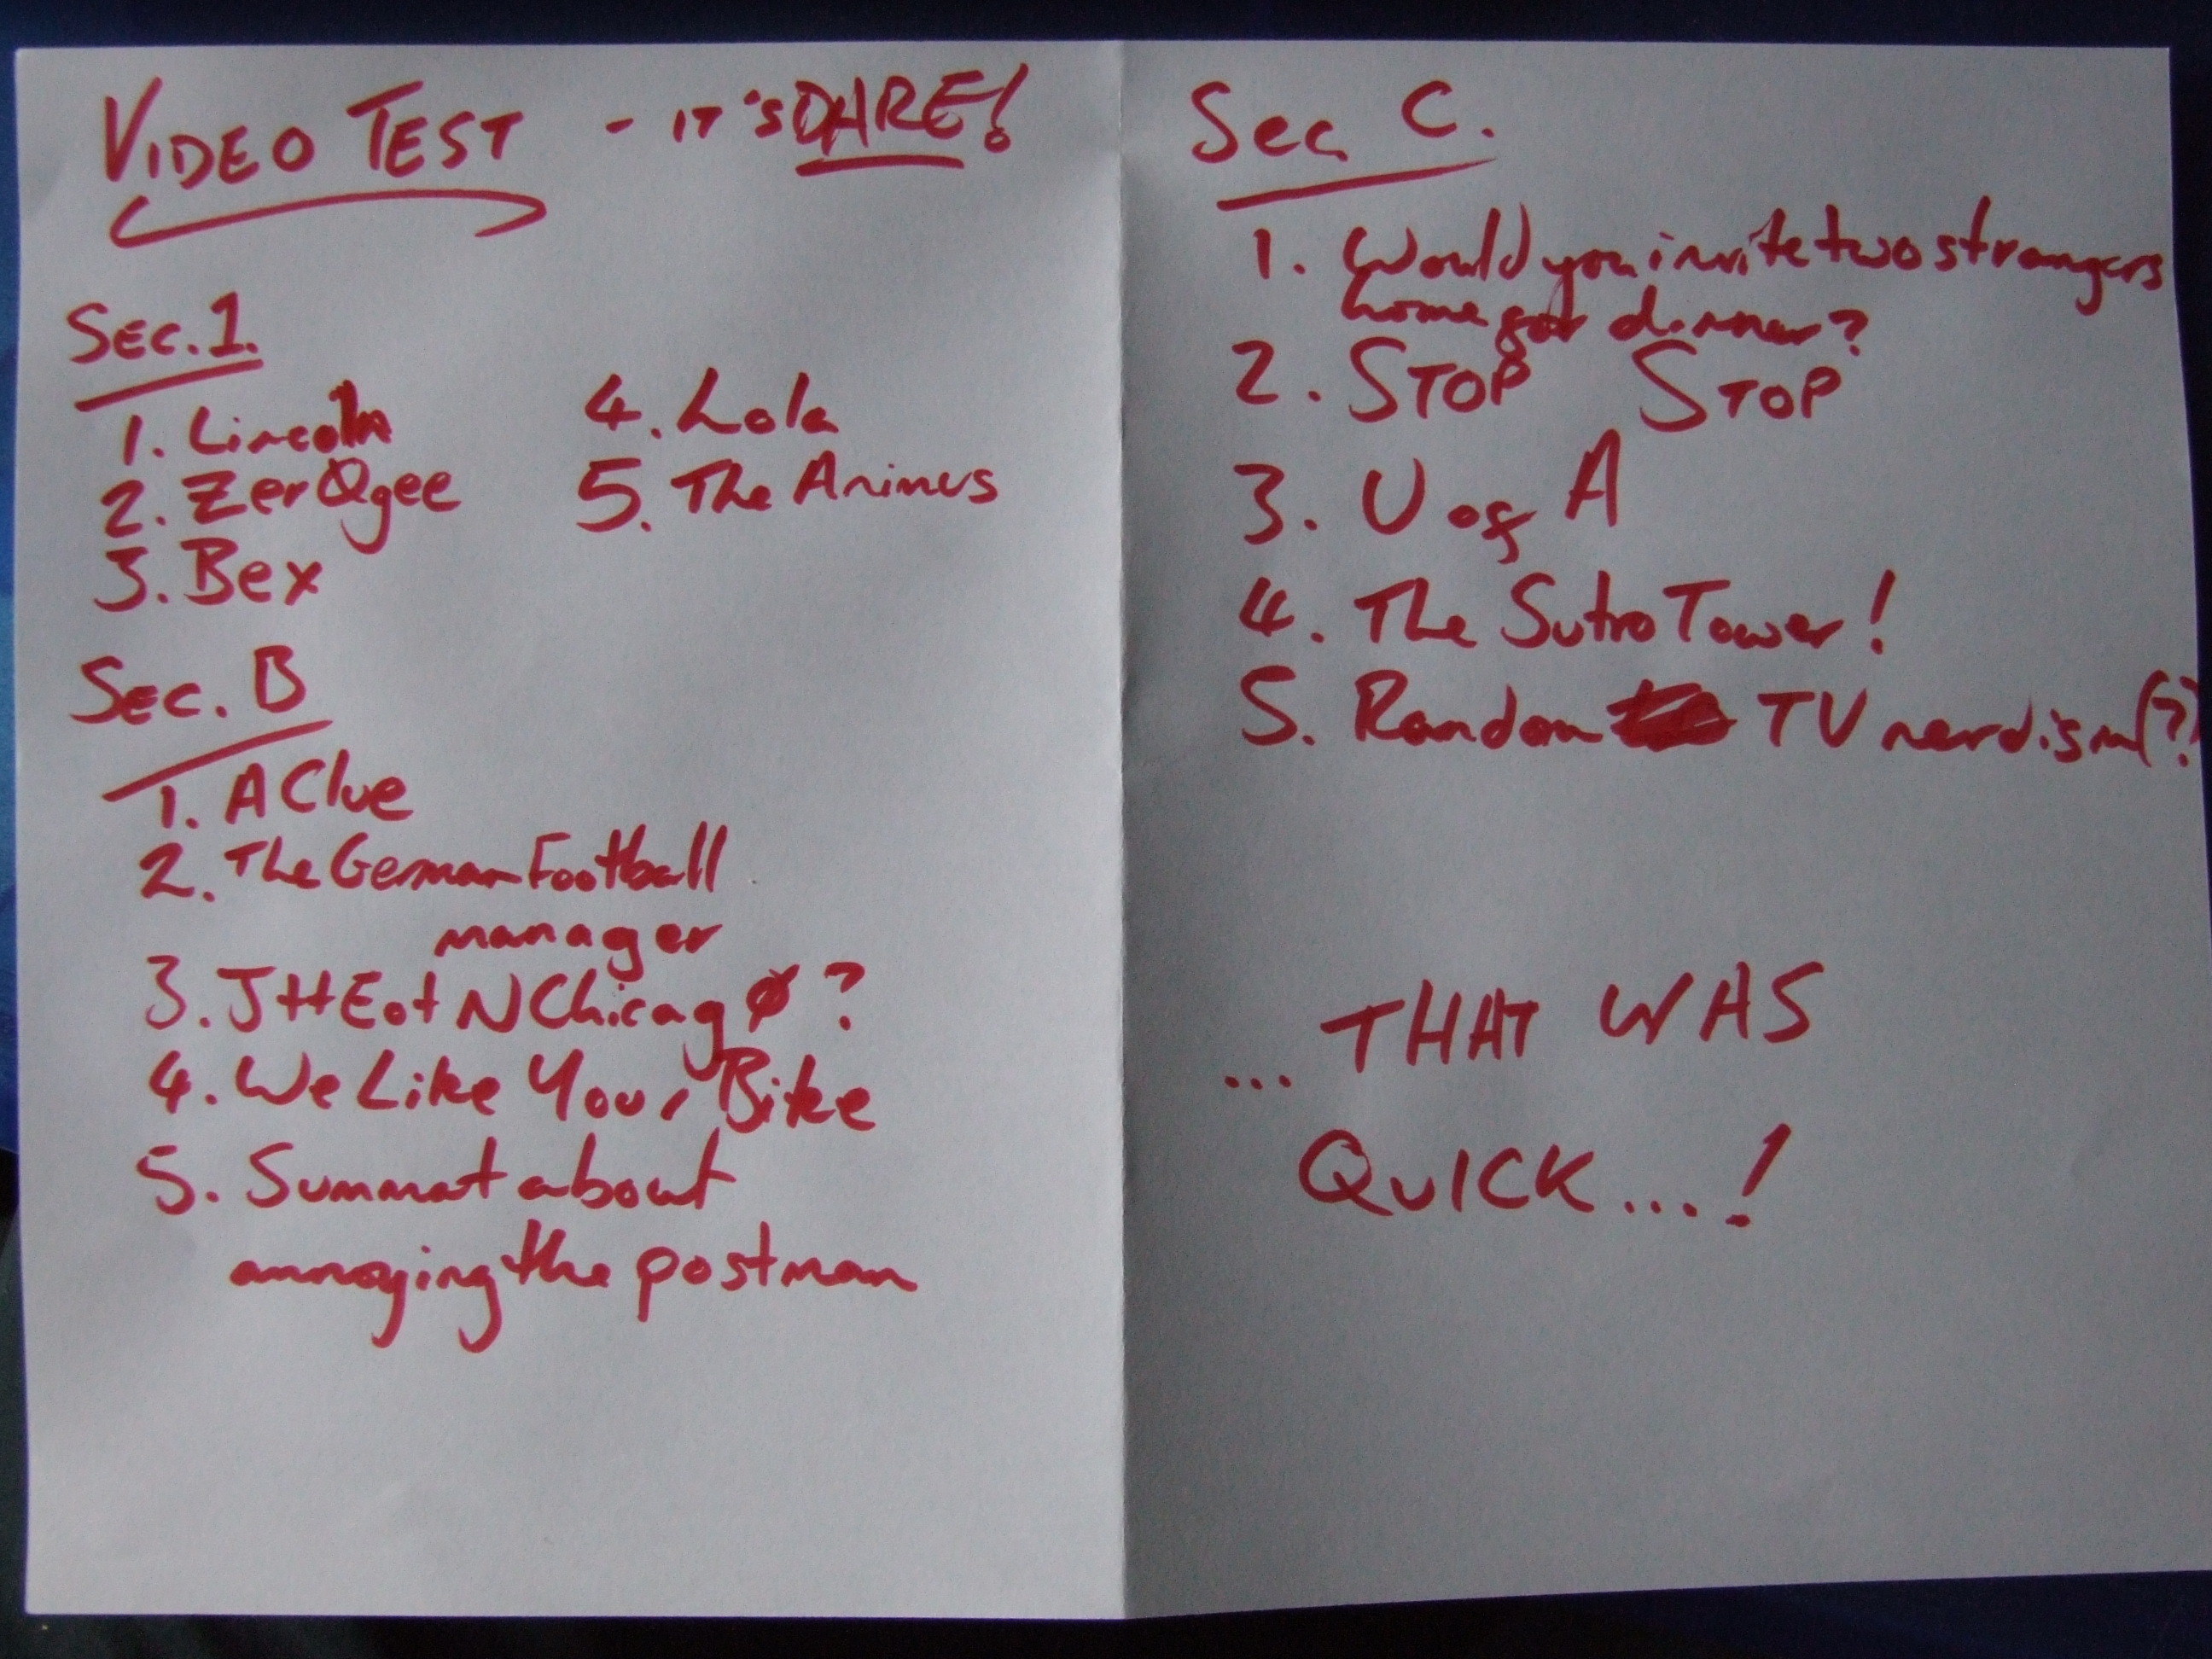 VIDEO TEST - IT'S DARE!
SEC. 1.
1. Lincoln
2. ZerOgee
3. Bex
4. Lola
5. The Animus
SEC. B
1. A Clue
2. The German Football
manager
3. JHEot N Chicago?
4. We Like Your Bike
5. Summat about
annoying the postman
Sec C.
1. Would you invite two strangers
home for dinner?
2. STOP STOP
3. U of A
4. The Sutro Tower!
5. Random TV nerdism(?)
... THAT WAS
QUICK....!